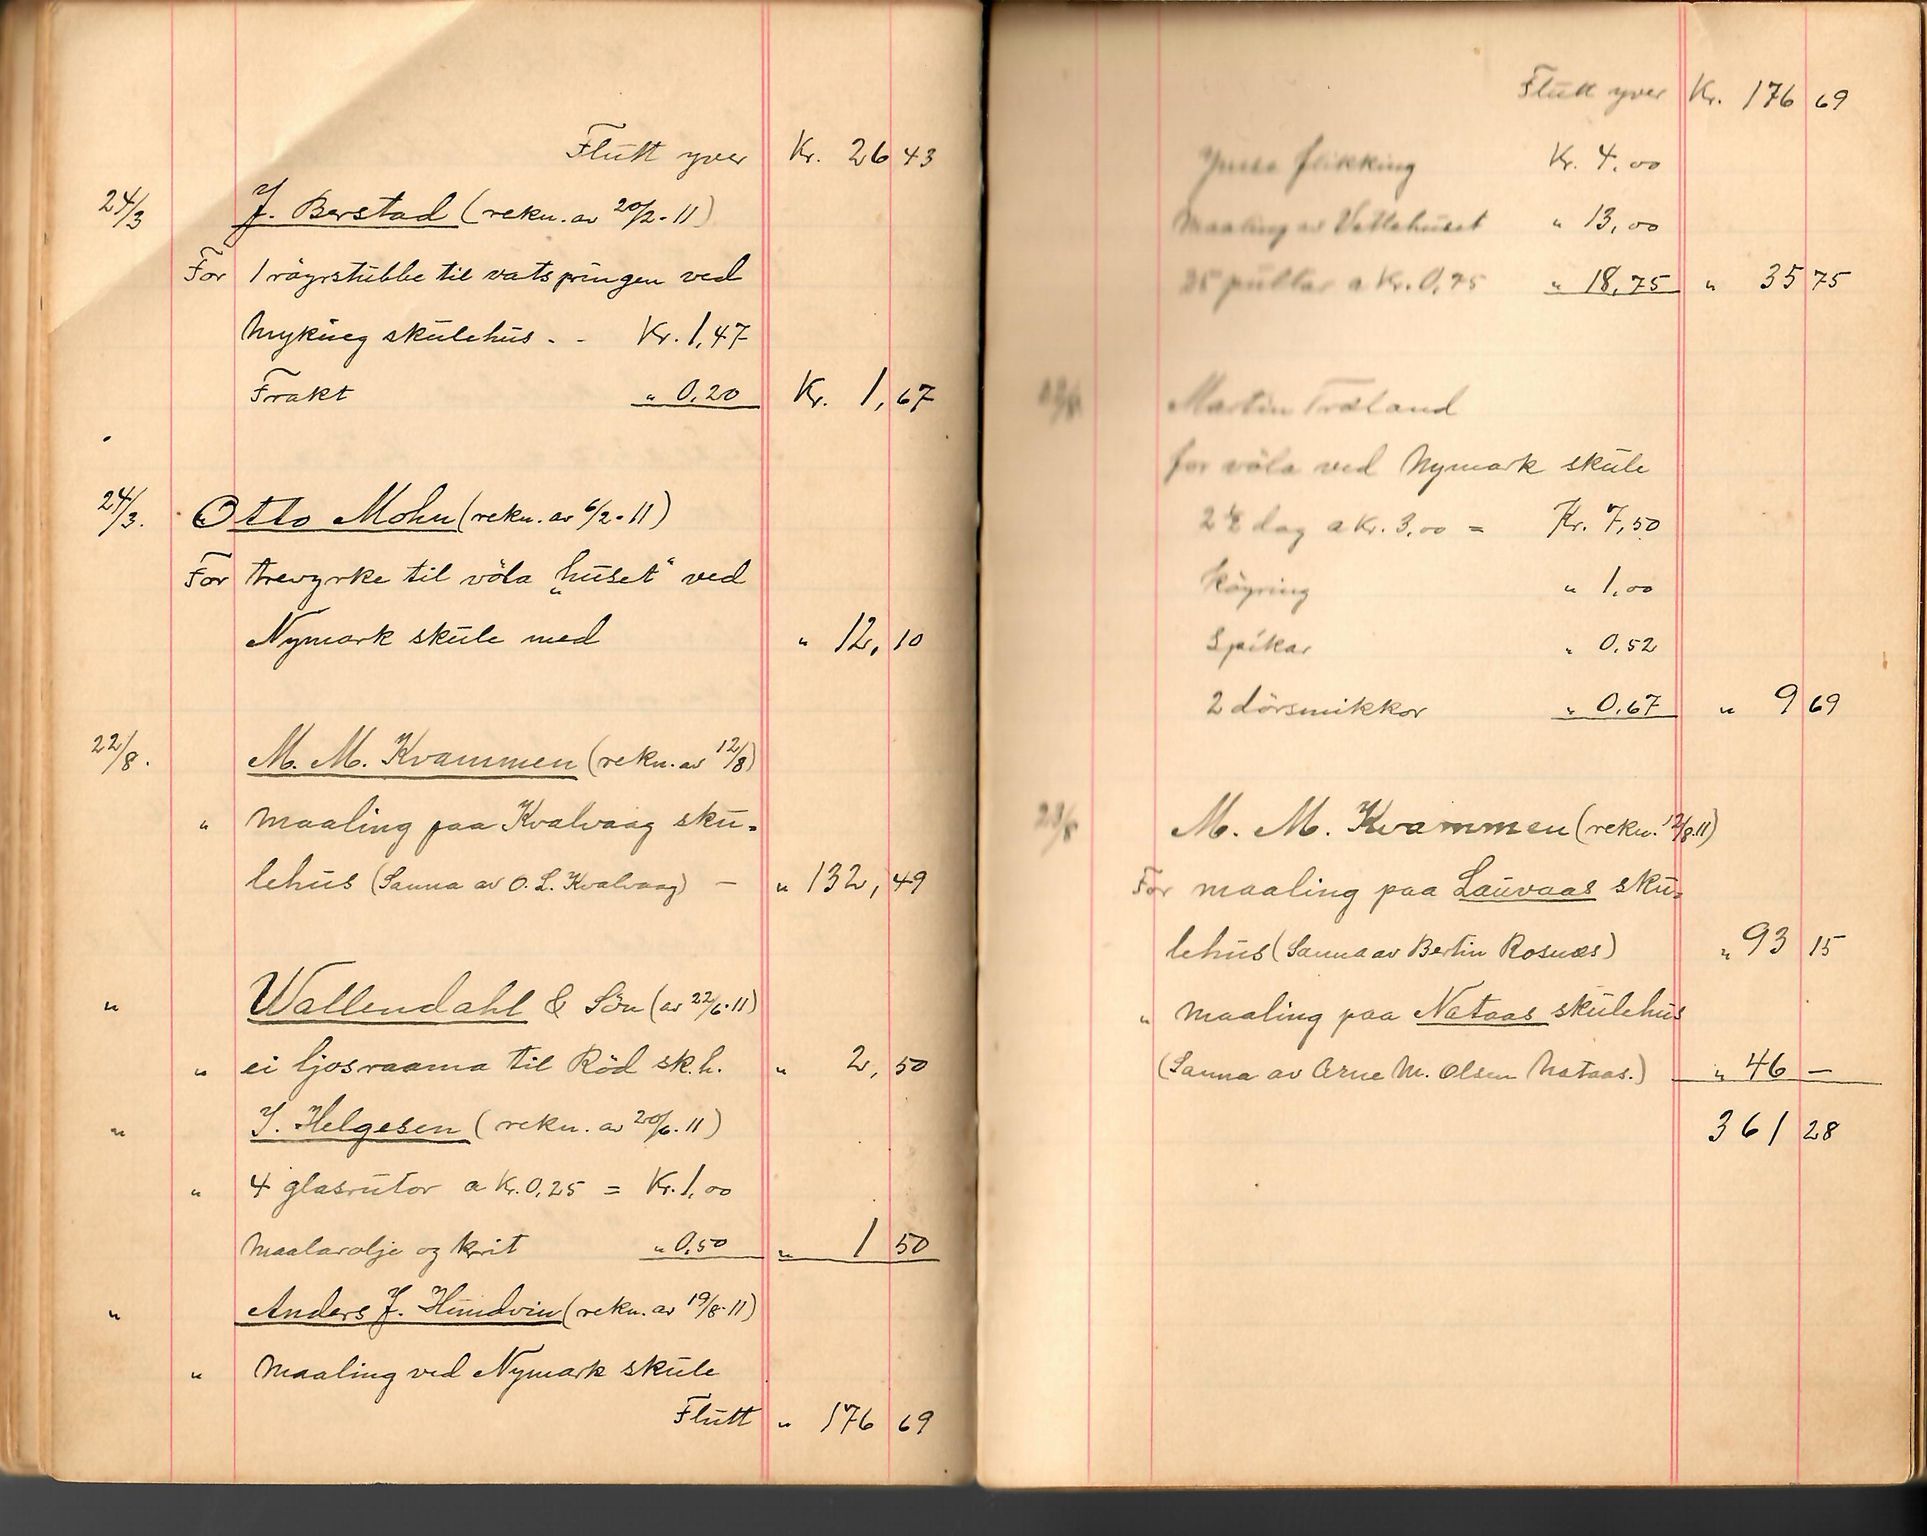 Flutt yver Kr. 26 43
24/3 J. Berstad (rekn. av 20/2-11)
For 1 röyrstubbe til vatspringen ved
Myking skulehus. - Kr. 1,47
Frakt " 0,20 Kr. 1,67
24/3. Otto Mohn (rekn. av 6/2-11)
For trevyrke til völa „huset" ved
Nymark skule med " 12,10
22/8. M. M. Kvammen (rekn. av 12/8)
" maaling paa Kvalvaag sku-
lehus (Sanna av O. L. Kvalvaag) — " 132,49
" Wallendahl & Sön (av 22/6-11)
" ei ljosraama til Röd sk.h. " 2,50
" J. Helgesen (rekn. av 20/6-11)
" 4 glasrutor a Kr. 0,25 = Kr. 1,00
maalarolje og krit " 0,50 " 1 50
" Anders J. Hundvin (rekn. av 19/8-11)
" maaling ved Nymark skule
Flutt " 176 69
Flutt yver Kr. 176 69
Ymse flikking Kr. 4,00
Maaling av Vetlehuset " 13,00
25 pultar a Kr. 0,75 " 18,75 " 35 75
Martin Træland
for völa ved Nymark skule
2 1/2 dag a Kr. 3,00 = Kr. 7,50
Köyring " 1,00
Spikar " 0,52
2 dörsmikkor " 0,67 " 9 69
23/8 M. M. Kvammen (rekn. 12/8 11)
For maaling paa Lauvaas sku-
lehus (Sanna av Bertin Rosnæs) " 93 15
" maaling paa Nataas skulehus
(Sanna av Arne M. Olsen Nataas.) " 46 —
361 28